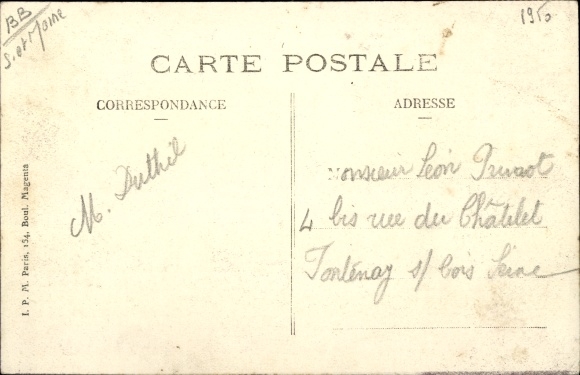 BB
S. et Marne
1910
CARTE POSTALE
CORRESPONDANCE
ADRESSE
M. Duthil
Monsieur Léon
4 bis rue du Châtelet
Fontenay s/ bois Seine
I. P. M. Paris, 154, Boul. Magenta